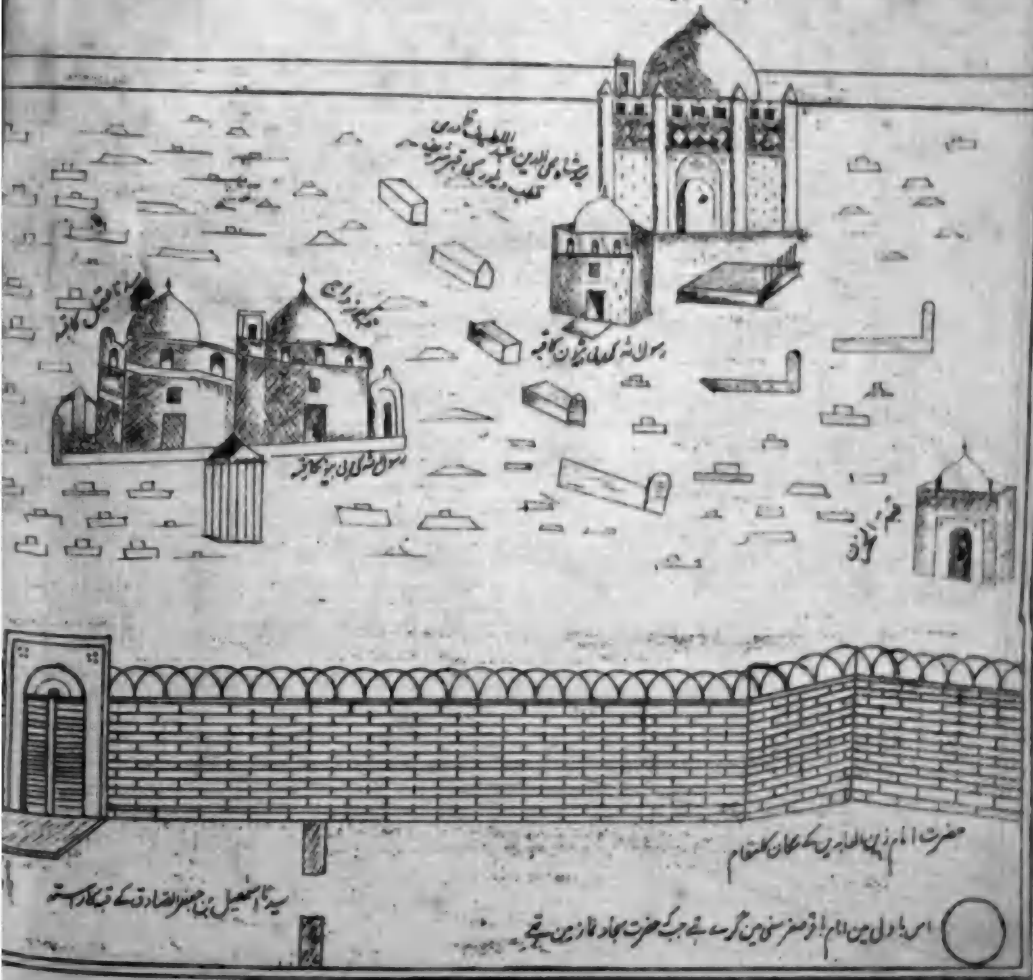 پیر شاہ محی الدین عبد اللطیف قادری
قطب ویلور کی قبر شریف
سیدنا عقیل کا قبہ
قبہ ازواج
رسول اللہ کی بیٹیوں کا قبہ
رسول اللہ کی
کا قبہ
قبۃ الحزن
حضرت امام زین العابدین کے مکان کا مقام
سیدنا اسمٰعیل بن جعفر الصادق کے قبہ کا رستہ
اس باولی مین امام باقر صغر سنی مین گرے تھے جب کہ حضرت سجاد نماز مین تھے